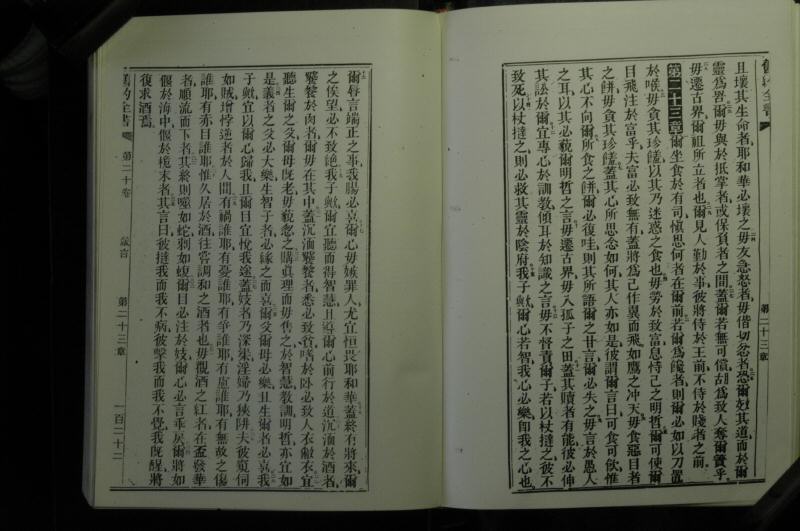 舊約全書
第二十三章
且壞其生命者、耶和華必壞之、毋友急怒者、毋偕切忿者、恐爾效其道、而於爾
靈爲罟、爾毋與於抵掌者、或保負者之間、蓋爾若無可償、曷爲致人奪爾簀乎、
毋遷古界、爾祖所立者也、爾見人勤於事、彼將侍於王前、不侍於賤者之前、
第二十三章 爾坐食於有司、愼思何者在爾前、若爾爲饞者、則爾必如以刀置
於喉、毋貪其珍饈、以其乃迷惑之食也、毋勞於致富、息恃己之明哲、爾可使爾
目飛注於富乎、夫富必致無有、蓋將爲己作翼而飛、如鷹之冲天、毋食惡目者
之餅、毋貪其珍饈、蓋其心所思念如何、其人亦如是、彼謂爾言曰、可食可飲、惟
其心不向爾、所食之餅、爾必復哇、則其所語爾之甘言、爾必失之、毋言於愚人
之耳、以其必藐爾明哲之言、毋遷古界、毋入孤子之田、蓋其贖者有能、彼必伸
其訟於爾、宜專心於訓教、傾耳於知識之言、毋不督責爾子、若以杖撻之、彼不
致死、以杖撻之、則必救其靈於陰府、我子歟、爾心若智、我心必樂、卽我之心也、
爾辱言端正之事、我腸必喜、爾心毋嫉罪人、尤宜恒畏耶和華、蓋終有將來、爾
之俟望、必不致絕、我子歟、爾宜聽而得智慧、且導爾心前行於道、沉湎於酒者、
饕餮於肉者、爾毋在其中、蓋沉湎饕餮者、悉必致貧、嗜於臥、必致人衣敝衣、宜
聽生爾之父、爾母旣老、毋藐忽之、購眞理而毋售之、於智慧教訓明哲、亦宜如
是、義者之父必大樂、生智子者、必緣之而喜、爾父爾母必樂、且生爾者必喜、我
子歟、宜以爾心歸我、且爾目宜悅我途、蓋妓者乃深渠、淫婦乃狹阱、夫彼覓伺
如賊、增悖逆者於人間、有禍誰耶、有憂誰耶、有爭誰耶、有慮誰耶、有無故之傷
誰耶、有赤目誰耶、惟久居於酒、往嘗調和之酒者也、毋觀酒之紅者、在盃發華
者、順流而下者、其終則噬如蛇、刺如蝮、爾目必注於妓、爾心必言乖戾、爾將如
偃於海中、偃於桅末者、其言曰、彼撻我、而我不病、彼擊我、而我不覺、我旣醒、將
復求酒焉、
舊約全書
第二十卷
箴言
第二十三章
一百二十二